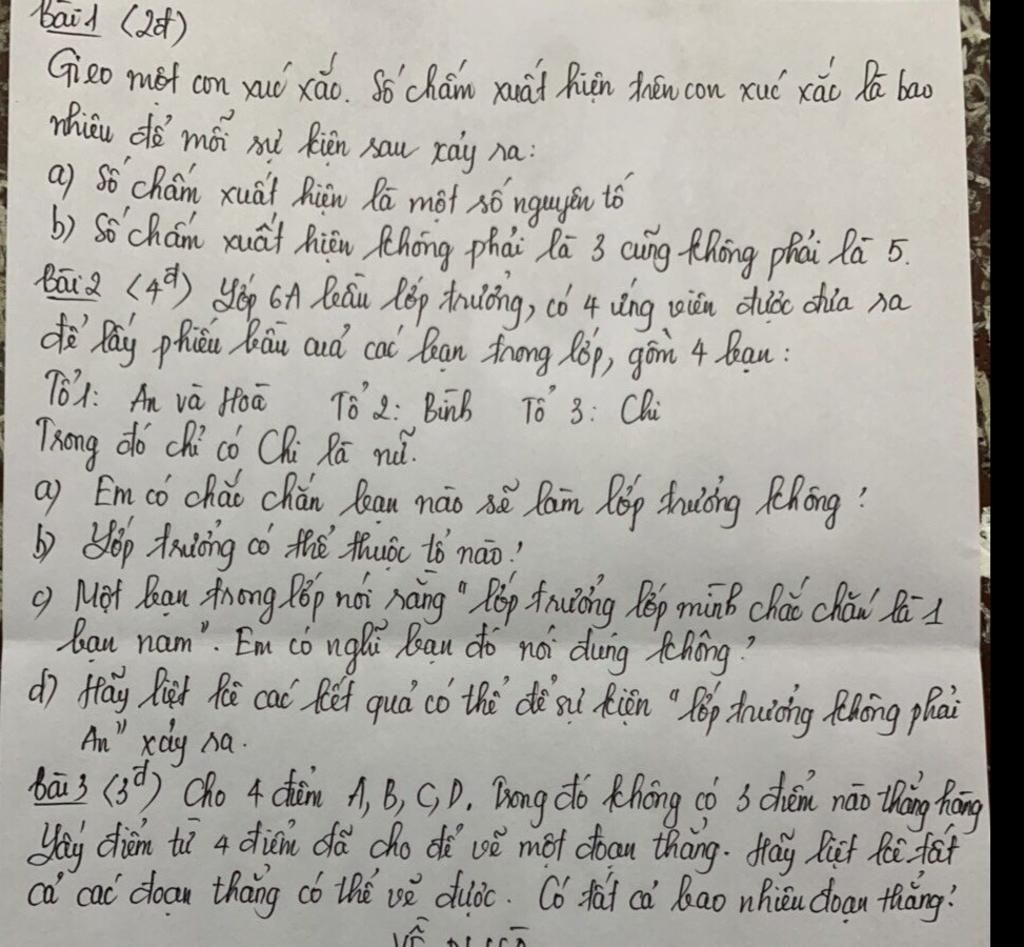 Bài 1 (2đ)
Gieo một con xúc xắc. Số chấm xuất hiện trên con xúc xắc là bao
nhiêu để mỗi sự kiện sau xảy ra:
a) Số chấm xuất hiện là một số nguyên tố
b) Số chấm xuất hiện không phải là 3 cũng không phải là 5.
Bài 2 (4đ) Lớp 6A bầu lớp trưởng, có 4 ứng viên được đưa ra
để lấy phiếu bầu của các bạn trong lớp, gồm 4 bạn:
Tổ 1: An và Hoà Tổ 2: Bình Tổ 3: Chi
Trong đó chỉ có Chi là nữ.
a) Em có chắc chắn bạn nào sẽ làm lớp trưởng không?
b) Lớp trưởng có thể thuộc tổ nào?
c) Một bạn trong lớp nói rằng "lớp trưởng lớp mình chắc chắn là 1
bạn nam". Em có nghĩ bạn đó nói đúng không?
d) Hãy liệt kê các kết quả có thể để sự kiện "lớp trưởng không phải
An" xảy ra.
Bài 3 (3đ) Cho 4 điểm A, B, C, D. Trong đó không có 3 điểm nào thẳng hàng
Lấy điểm từ 4 điểm đã cho để vẽ một đoạn thẳng. Hãy liệt kê tất
cả các đoạn thẳng có thể vẽ được. Có tất cả bao nhiêu đoạn thẳng?